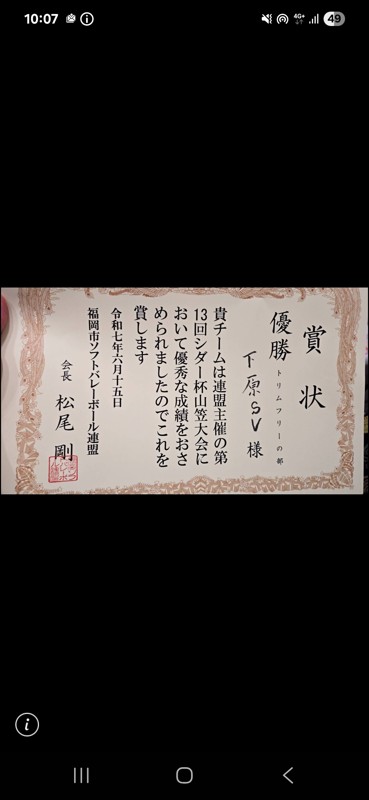 10:07
4G+
49
賞状
優勝
トリムフリーの部
下原SV 様
貴チームは連盟主催の第
13回シダー杯山笠大会に
おいて優秀な成績をおさ
められましたのでこれを
賞します
令和七年六月十五日
福岡市ソフトバレーボール連盟
会長 松尾 剛